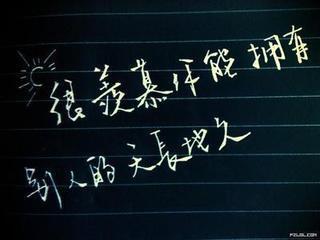 很羡慕你能拥有
别人的天長地久
PZLBL.COM